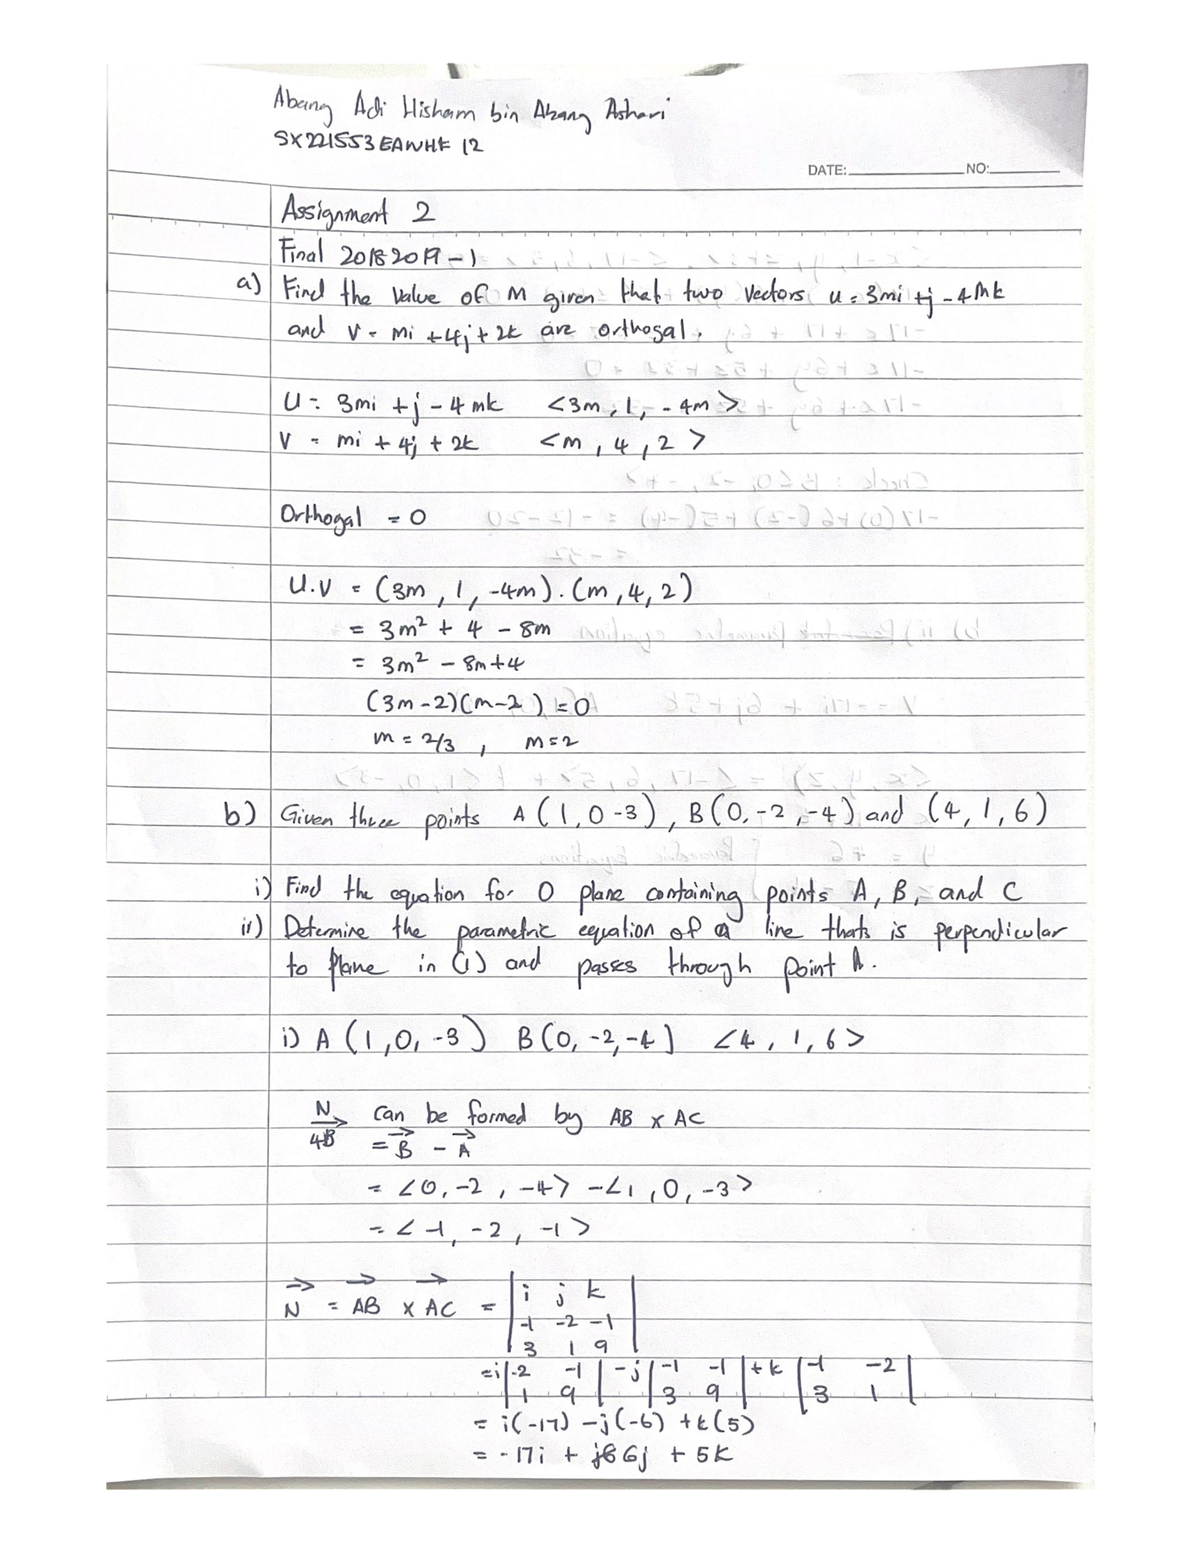 Abang Adi Hisham bin Abang Ashari
SX221553EAWHF 12
DATE: NO:
Assignment 2
Final 20182019-1
a) Find the value of M given that two vectors u = 3mi + j - 4mk
and v = mi + 4j + 2k are orthogal.
U = 3mi + j - 4mk <3m, 1, -4m>
V = mi + 4j + 2k <m, 4, 2>
Orthogal = 0
U.V = (3m, 1, -4m). (m, 4, 2)
= 3m² + 4 - 8m
= 3m² - 8m + 4
(3m - 2)(m - 2) = 0
m = 2/3, m = 2
b) Given three points A (1, 0 -3), B (0, -2, -4) and (4, 1, 6)
i) Find the equation for 0 plane containing points A, B, and C
ii) Determine the parametric equation of a line thats is perpendicular
to plane in (i) and passes through point A.
i) A (1, 0, -3) B (0, -2, -4) <4, 1, 6>
N can be formed by AB x AC
AB = B - A
= <0, -2, -4> - <1, 0, -3>
= <-1, -2, -1>
N = AB x AC = | i j k |
| -1 -2 -1 |
| 3 1 9 |
= i | -2 -1 | - j | -1 -1 | + k | -1 -2 |
| 1 9 | | 3 9 | | 3 1 |
= i(-17) - j(-6) + k(5)
= -17i + 6j + 5k